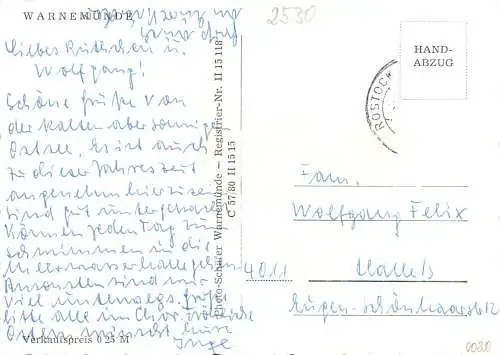 WARNEMÜNDE
Liebes Ruthchen u.
Wolfgang!
Schöne Grüße von
der kalten aber sonnigen
Ostsee. Es ist auch
zu dieser Jahreszeit
angenehm hier zu sein
sind gut untergebracht
können jeden Tag zum
schwimmen in die
Meerwasserhalle gehen
Ansonsten sind wir
viel unterwegs.
bitte alle im Chor
Ostern
Inge
Verkaufspreis 0 25 M
Photo-Schäfer Warnemünde — Registrier-Nr. II 15 118
C 57/80 II 15 15
2530
HAND-
ABZUG
ROSTOCK
Fam.
Wolfgang Felix
4011
Halle/S
Eugen-Schönhaarstr 12
0020